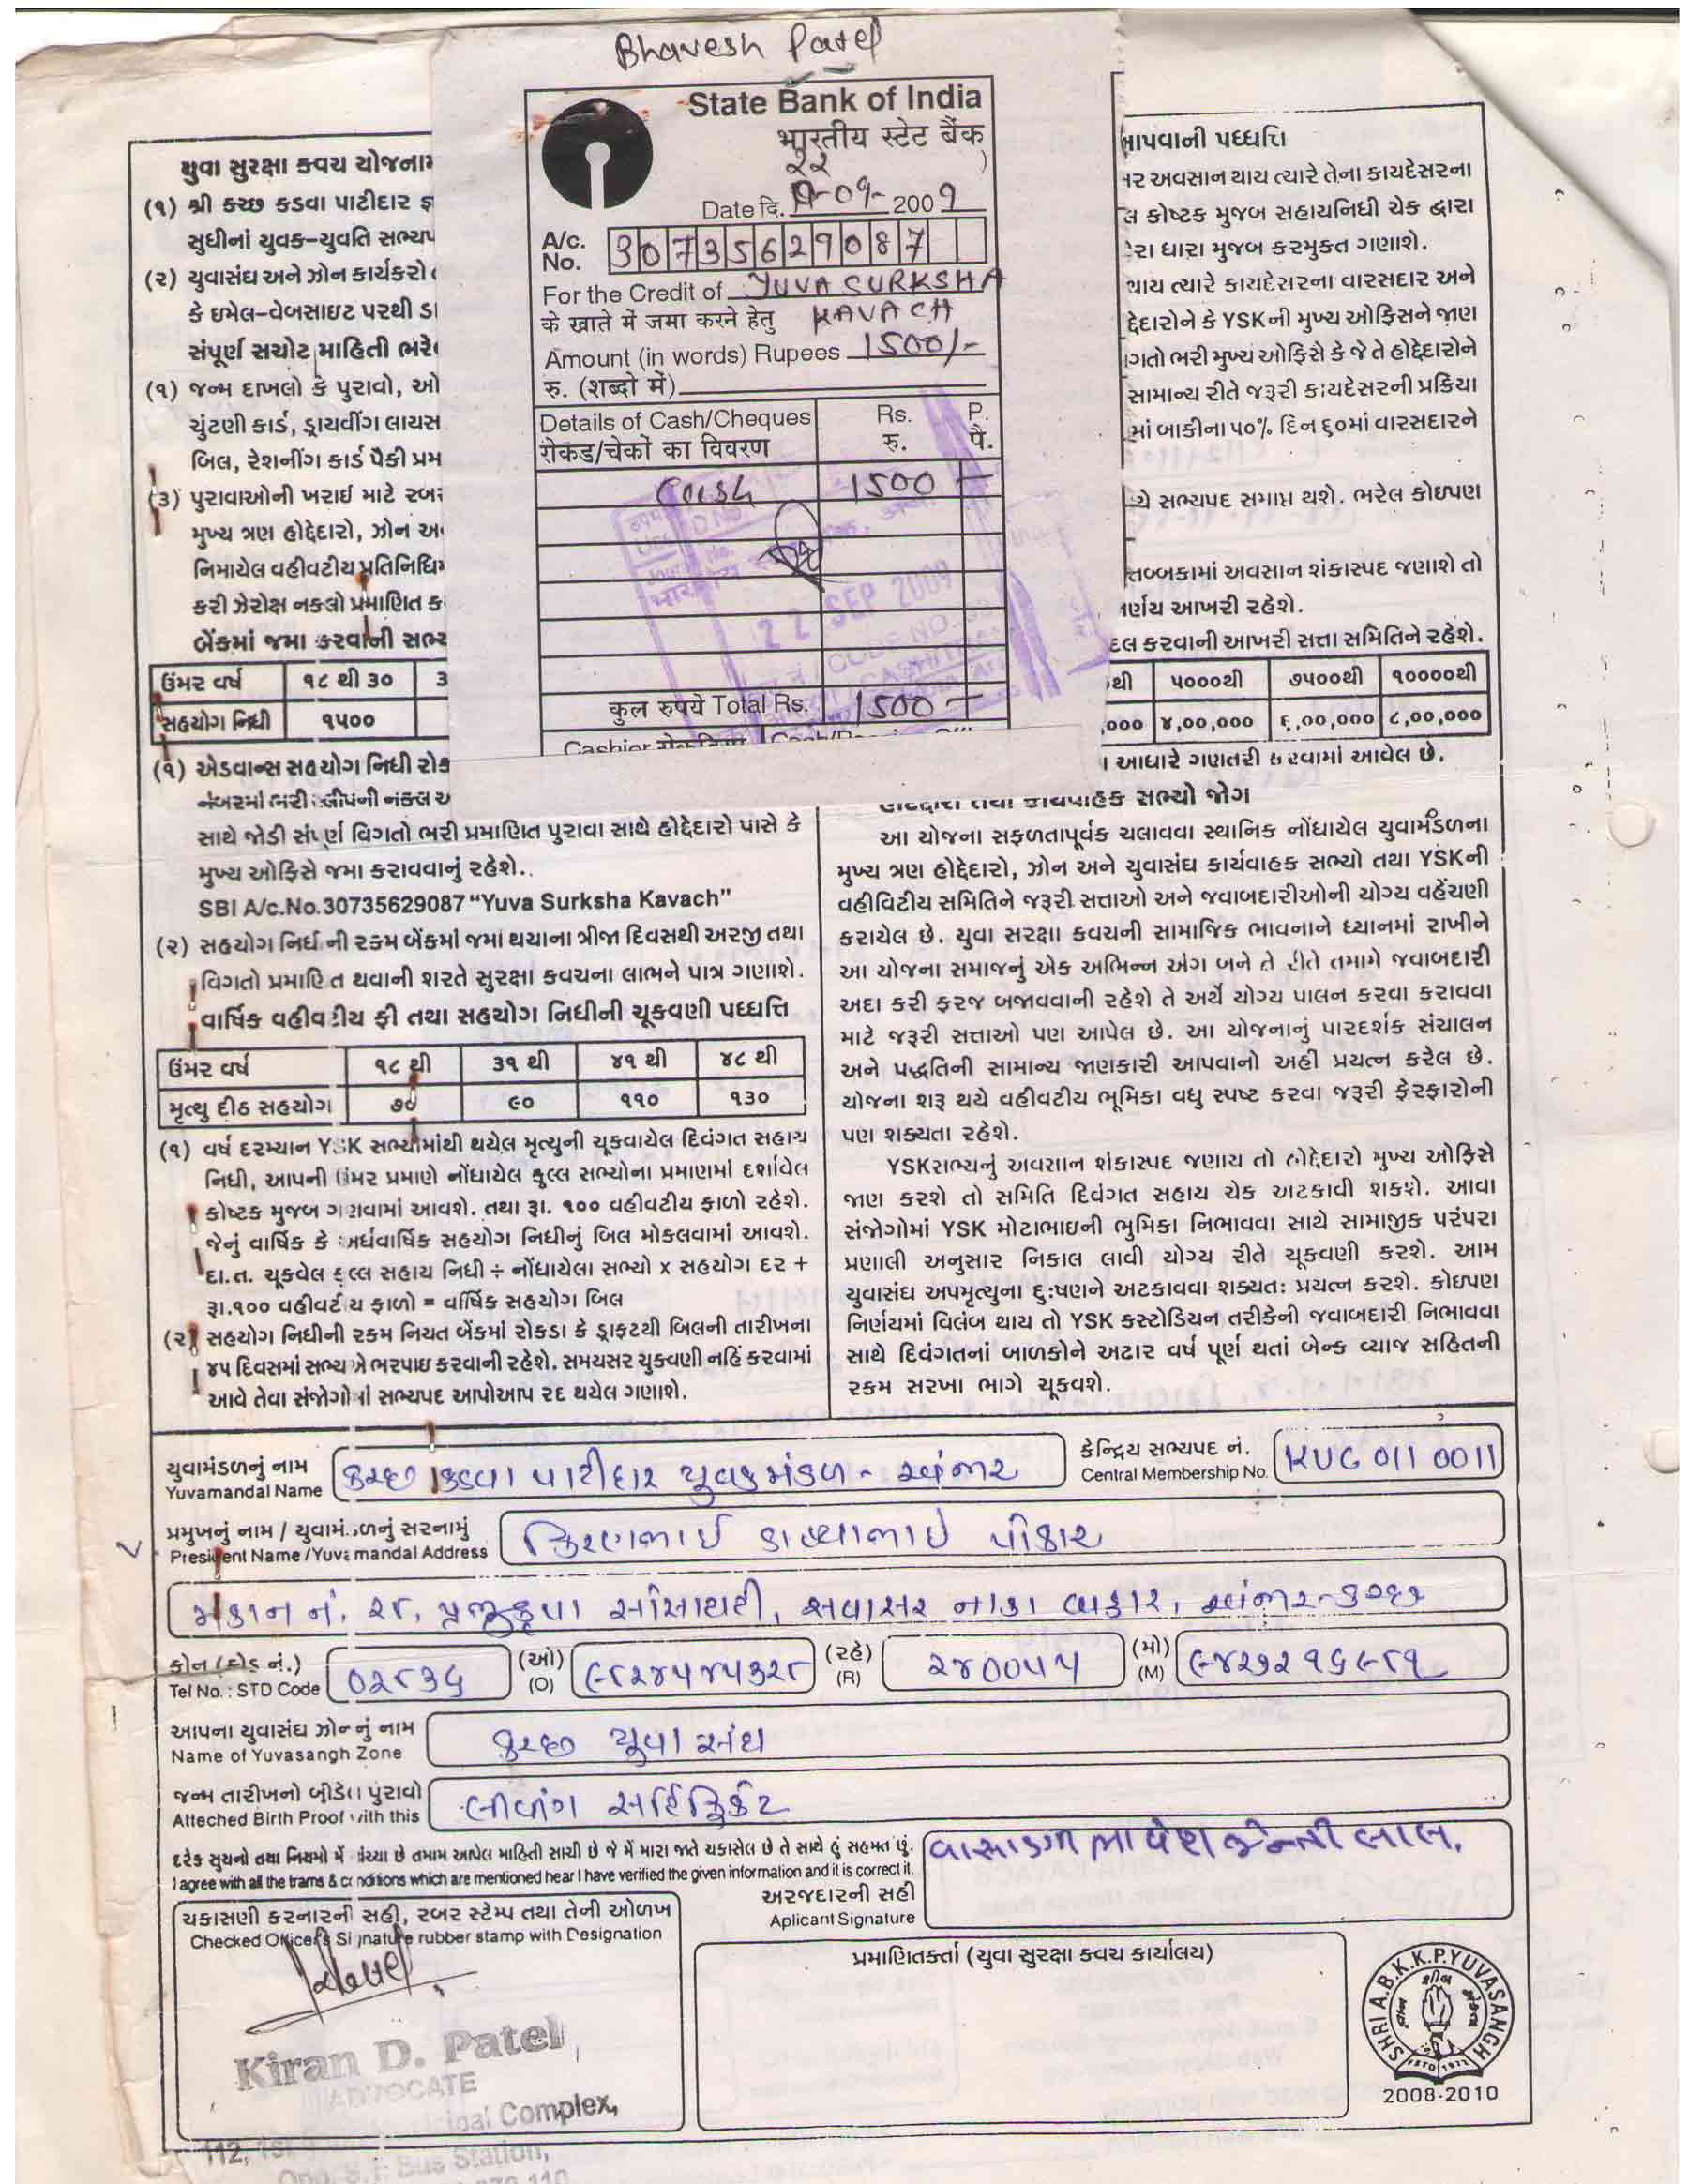 Bhavesh Patel
State Bank of India
भारतीय स्टेट बैंक
२२
Date दि. -09- 2009
A/c. No. 30735629087
For the Credit of YUVA SURKSHA
के खाते में जमा करने हेतु KAVACH
Amount (in words) Rupees 1500/-
रु. (शब्दो में)
Details of Cash/Cheques Rs. P.
रोकड/चेकों का विवरण रु. पै.
Cash 1500 -
22 SEP 2009
कुल रुपये Total Rs. 1500 -
યુવા સુરક્ષા કવચ યોજનામ
(૧) શ્રી કચ્છ કડવા પાટીદાર જ્ઞ
સુધીનાં યુવક-યુવતિ સભ્યપ
(૨) યુવાસંઘ અને ઝોન કાર્યકરો
કે ઇમેલ-વેબસાઇટ પરથી ડા
સંપૂર્ણ સચોટ માહિતી ભરે
(૧) જન્મ દાખલો કે પુરાવો, ઓ
ચુંટણી કાર્ડ, ડ્રાયવીંગ લાયસ
બિલ, રેશનીંગ કાર્ડ પૈકી પ્રમ
(૩) પુરાવાઓની ખરાઇ માટે રબ
મુખ્ય ત્રણ હોદ્દેદારો, ઝોન અ
નિમાયેલ વહીવટીય પ્રતિનિધિ
કરી ઝેરોક્ષ નકલો પ્રમાણિત ક
બેંકમાં જમા કરવાની સભ્ય
ઉંમર વર્ષ ૧૮ થી ૩૦ ૩
સહયોગ નિધી ૧૫૦૦
(૧) એડવાન્સ સહયોગ નિધી રોક
નંબરમાં ભરી સ્લીપની નકલ અ
સાથે જોડી સંપૂર્ણ વિગતો ભરી પ્રમાણિત પુરાવા સાથે હોદ્દેદારો પાસે કે
મુખ્ય ઓફિસે જમા કરાવવાનું રહેશે..
SBI A/c.No.30735629087 "Yuva Surksha Kavach"
(૨) સહયોગ નિધીની રકમ બેંકમાં જમા થયાના ત્રીજા દિવસથી અરજી તથા
વિગતો પ્રમાણિત થવાની શરતે સુરક્ષા કવચના લાભને પાત્ર ગણાશે.
વાર્ષિક વહીવટીય ફી તથા સહયોગ નિધીની ચૂકવણી પધ્ધતિ
ઉંમર વર્ષ ૧૮ થી ૩૧ થી ૪૧ થી ૪૮ થી
મૃત્યુ દીઠ સહયોગ ૭૦ ૯૦ ૧૧૦ ૧૩૦
(૧) વર્ષ દરમ્યાન YSK સભ્યોમાંથી થયેલ મૃત્યુની ચૂકવાયેલ દિવંગત સહાય
નિધી, આપની ઉંમર પ્રમાણે નોંધાયેલ કુલ્લ સભ્યોના પ્રમાણમાં દર્શાવેલ
કોષ્ટક મુજબ ગણવામાં આવશે. તથા રૂા. ૧૦૦ વહીવટીય ફાળો રહેશે.
જેનું વાર્ષિક કે અર્ધવાર્ષિક સહયોગ નિધીનું બિલ મોકલવામાં આવશે.
દા.ત. ચૂકવેલ કુલ્લ સહાય નિધી ÷ નોંધાયેલા સભ્યો x સહયોગ દર +
રૂા.૧૦૦ વહીવટીય ફાળો = વાર્ષિક સહયોગ બિલ
(૨) સહયોગ નિધીની રકમ નિયત બેંકમાં રોકડા કે ડ્રાફટથી બિલની તારીખના
૪૫ દિવસમાં સભ્યએ ભરપાઇ કરવાની રહેશે. સમયસર ચુકવણી નહિં કરવામાં
આવે તેવા સંજોગોમાં સભ્યપદ આપોઆપ રદ થયેલ ગણાશે.
આપવાની પધ્ધતિ
પર અવસાન થાય ત્યારે તેના કાયદેસરના
લ કોષ્ટક મુજબ સહાયનિધી ચેક દ્વારા
રા ધારા મુજબ કરમુક્ત ગણાશે.
થાય ત્યારે કાયદેસરના વારસદાર અને
દ્દેદારોને કે YSKની મુખ્ય ઓફિસને જાણ
ગતો ભરી મુખ્ય ઓફિસે કે જે તે હોદ્દેદારોને
સામાન્ય રીતે જરૂરી કાયદેસરની પ્રક્રિયા
માં બાકીના ૫૦% દિન ૬૦માં વારસદારને
ચે સભ્યપદ સમાપ્ત થશે. ભરેલ કોઇપણ
તબ્બકામાં અવસાન શંકાસ્પદ જણાશે તો
ર્ણય આખરી રહેશે.
દલ કરવાની આખરી સત્તા સમિતિને રહેશે.
થી ૫૦૦૦થી ૭૫૦૦થી ૧૦૦૦૦થી
,૦૦૦ ૪,૦૦,૦૦૦ ૬,૦૦,૦૦૦ ૮,૦૦,૦૦૦
આધારે ગણતરી કરવામાં આવેલ છે.
હોદ્દેદારો તથા કાર્યવાહક સભ્યો જોગ
આ યોજના સફળતાપૂર્વક ચલાવવા સ્થાનિક નોંધાયેલ યુવામંડળના
મુખ્ય ત્રણ હોદ્દેદારો, ઝોન અને યુવાસંઘ કાર્યવાહક સભ્યો તથા YSKની
વહીવિટીય સમિતિને જરૂરી સત્તાઓ અને જવાબદારીઓની યોગ્ય વહેંચણી
કરાયેલ છે. યુવા સરક્ષા કવચની સામાજિક ભાવનાને ધ્યાનમાં રાખીને
આ યોજના સમાજનું એક અભિન્ન અંગ બને તે રીતે તમામે જવાબદારી
અદા કરી ફરજ બજાવવાની રહેશે તે અર્થે યોગ્ય પાલન કરવા કરાવવા
માટે જરૂરી સત્તાઓ પણ આપેલ છે. આ યોજનાનું પારદર્શક સંચાલન
અને પદ્ધતિની સામાન્ય જાણકારી આપવાનો અહી પ્રયત્ન કરેલ છે.
યોજના શરૂ થયે વહીવટીય ભૂમિકા વધુ સ્પષ્ટ કરવા જરૂરી ફેરફારોની
પણ શક્યતા રહેશે.
YSKસભ્યનું અવસાન શંકાસ્પદ જણાય તો હોદ્દેદારો મુખ્ય ઓફિસે
જાણ કરશે તો સમિતિ દિવંગત સહાય ચેક અટકાવી શકશે. આવા
સંજોગોમાં YSK મોટાભાઇની ભુમિકા નિભાવવા સાથે સામાજીક પરંપરા
પ્રણાલી અનુસાર નિકાલ લાવી યોગ્ય રીતે ચૂકવણી કરશે. આમ
યુવાસંઘ અપમૃત્યુના દુઃષણને અટકાવવા શક્યતઃ પ્રયત્ન કરશે. કોઇપણ
નિર્ણયમાં વિલંબ થાય તો YSK કસ્ટોડિયન તરીકેની જવાબદારી નિભાવવા
સાથે દિવંગતનાં બાળકોને અઢાર વર્ષ પૂર્ણ થતાં બેન્ક વ્યાજ સહિતની
રકમ સરખા ભાગે ચૂકવશે.
યુવામંડળનું નામ કચ્છ કડવા પાટીદાર યુવક મંડળ - અંજાર
Yuvamandal Name
કેન્દ્રિય સભ્યપદ નં. KUG 011 0011
Central Membership No.
પ્રમુખનું નામ / યુવામંડળનું સરનામું કિરણભાઈ ડાહ્યાભાઈ પોકાર
President Name /Yuvamandal Address
મકાન નં. ૨૮, પ્રભુકૃપા સોસાયટી, સવાસર નાકા બહાર, અંજાર-કચ્છ
ફોન (કોડ નં.) ૦૨૮૩૬ (ઓ) ૯૮૨૪૫૪૫૩૨૮ (રહે) ૨૪૦૦૫૫ (મો) ૯૪૨૭૨૧૬૯૮૧
Tel No. : STD Code (O) (R) (M)
આપના યુવાસંઘ ઝોનનું નામ કચ્છ યુવા સંઘ
Name of Yuvasangh Zone
જન્મ તારીખનો બીડેલ પુરાવો લીવીંગ સર્ટિફિકેટ
Atteched Birth Proof with this
દરેક સુચનો તથા નિયમો મેં વાંચ્યા છે તમામ આપેલ માહિતી સાચી છે જે મેં મારા જાતે ચકાસેલ છે તે સાથે હું સહમત છું.
I agree with all the trams & conditions which are mentioned hear I have verified the given information and it is correct it.
અરજદારની સહી
Aplicant Signature
વાસાણી ભાવેશ જેન્તીલાલ.
ચકાસણી કરનારની સહી, રબર સ્ટેમ્પ તથા તેની ઓળખ
Checked Officer's Signature rubber stamp with Designation
Kiran D. Patel
ADVOCATE
Complex,
112, 1st
Opp. S.T. Bus Station,
પ્રમાણિતકર્તા (યુવા સુરક્ષા કવચ કાર્યાલય)
SHRI A.B.K.K.P.YUVASANGH
2008-2010